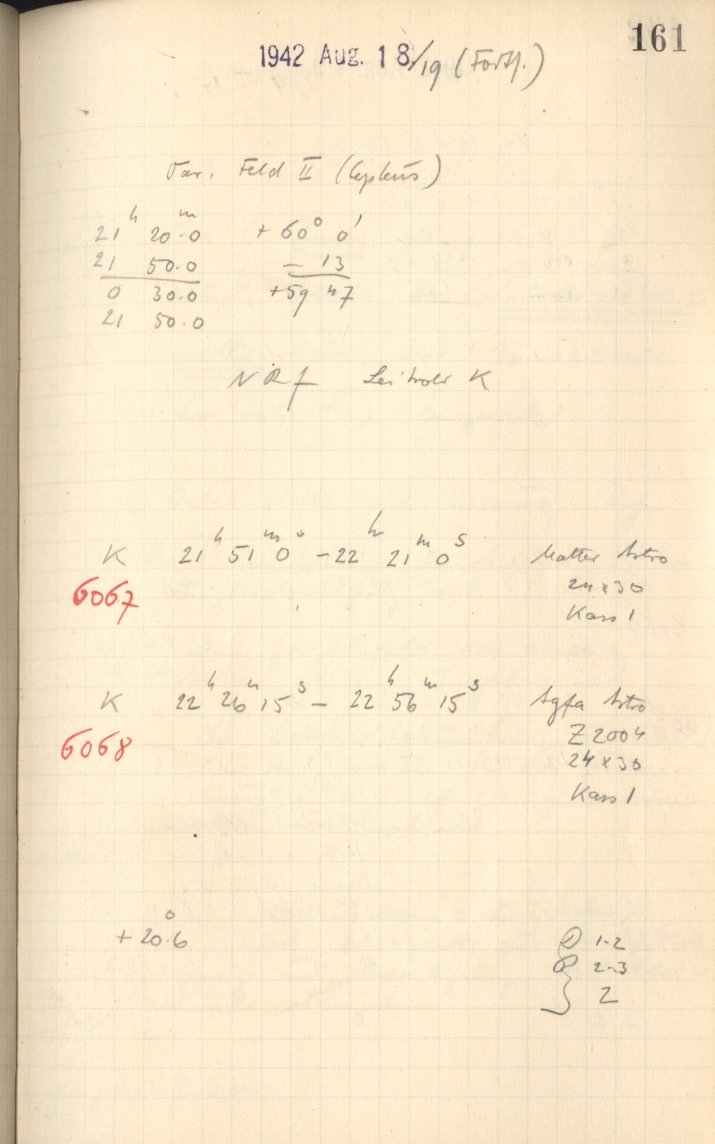 161
1942 Aug. 18/19 (Forts.)
Var. Feld II (Cepheus)
21h 20m.0 +60° 0'
21 50.0 - 13
0 30.0 +59 47
21 50.0
NRf Leitrohr K
K 21h 51m 0s - 22h 21m 0s Matter Astro
6067 24x30
Kass 1
K 22h 26m 15s - 22h 56m 15s Agfa Astro
6068 Z 2004
24x30
Kass 1
+20°.6 D 1-2
R 2-3
2